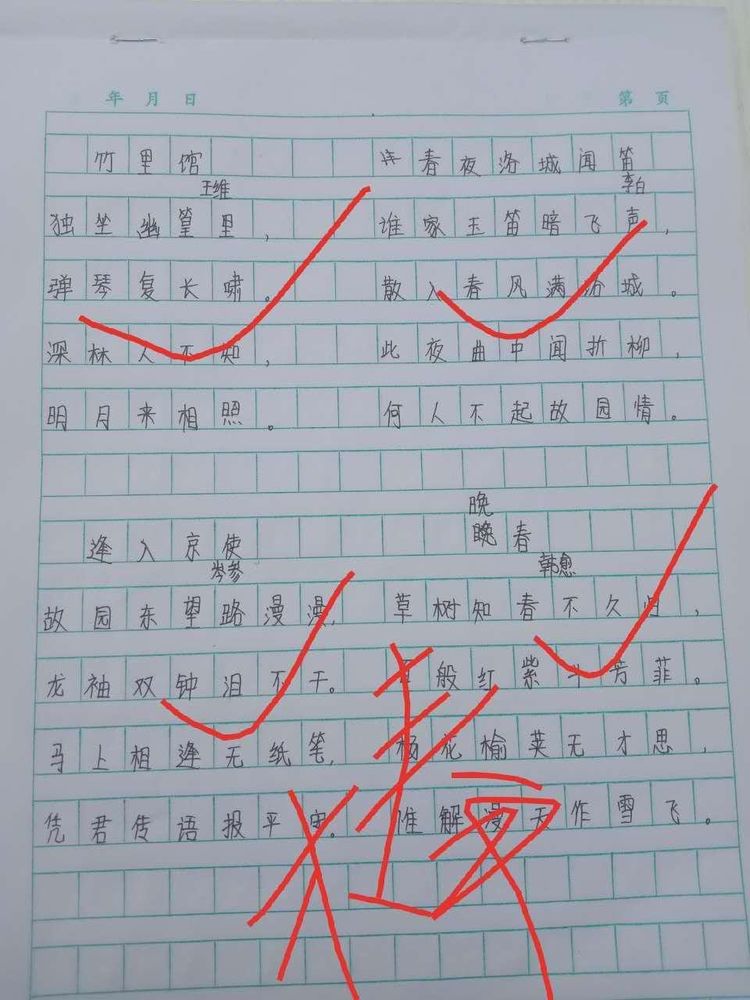 年 月 日
第 页
竹里馆
王维
独坐幽篁里，
弹琴复长啸。
深林人不知，
明月来相照。
春夜洛城闻笛
李白
谁家玉笛暗飞声，
散入春风满洛城。
此夜曲中闻折柳，
何人不起故园情。
逢入京使
岑参
故园东望路漫漫，
龙袖双钟泪不干。
马上相逢无纸笔，
凭君传语报平安。
晚
晚春
韩愈
草树知春不久归，
般红紫斗芳菲。
杨花榆荚无才思，
惟解漫天作雪飞。